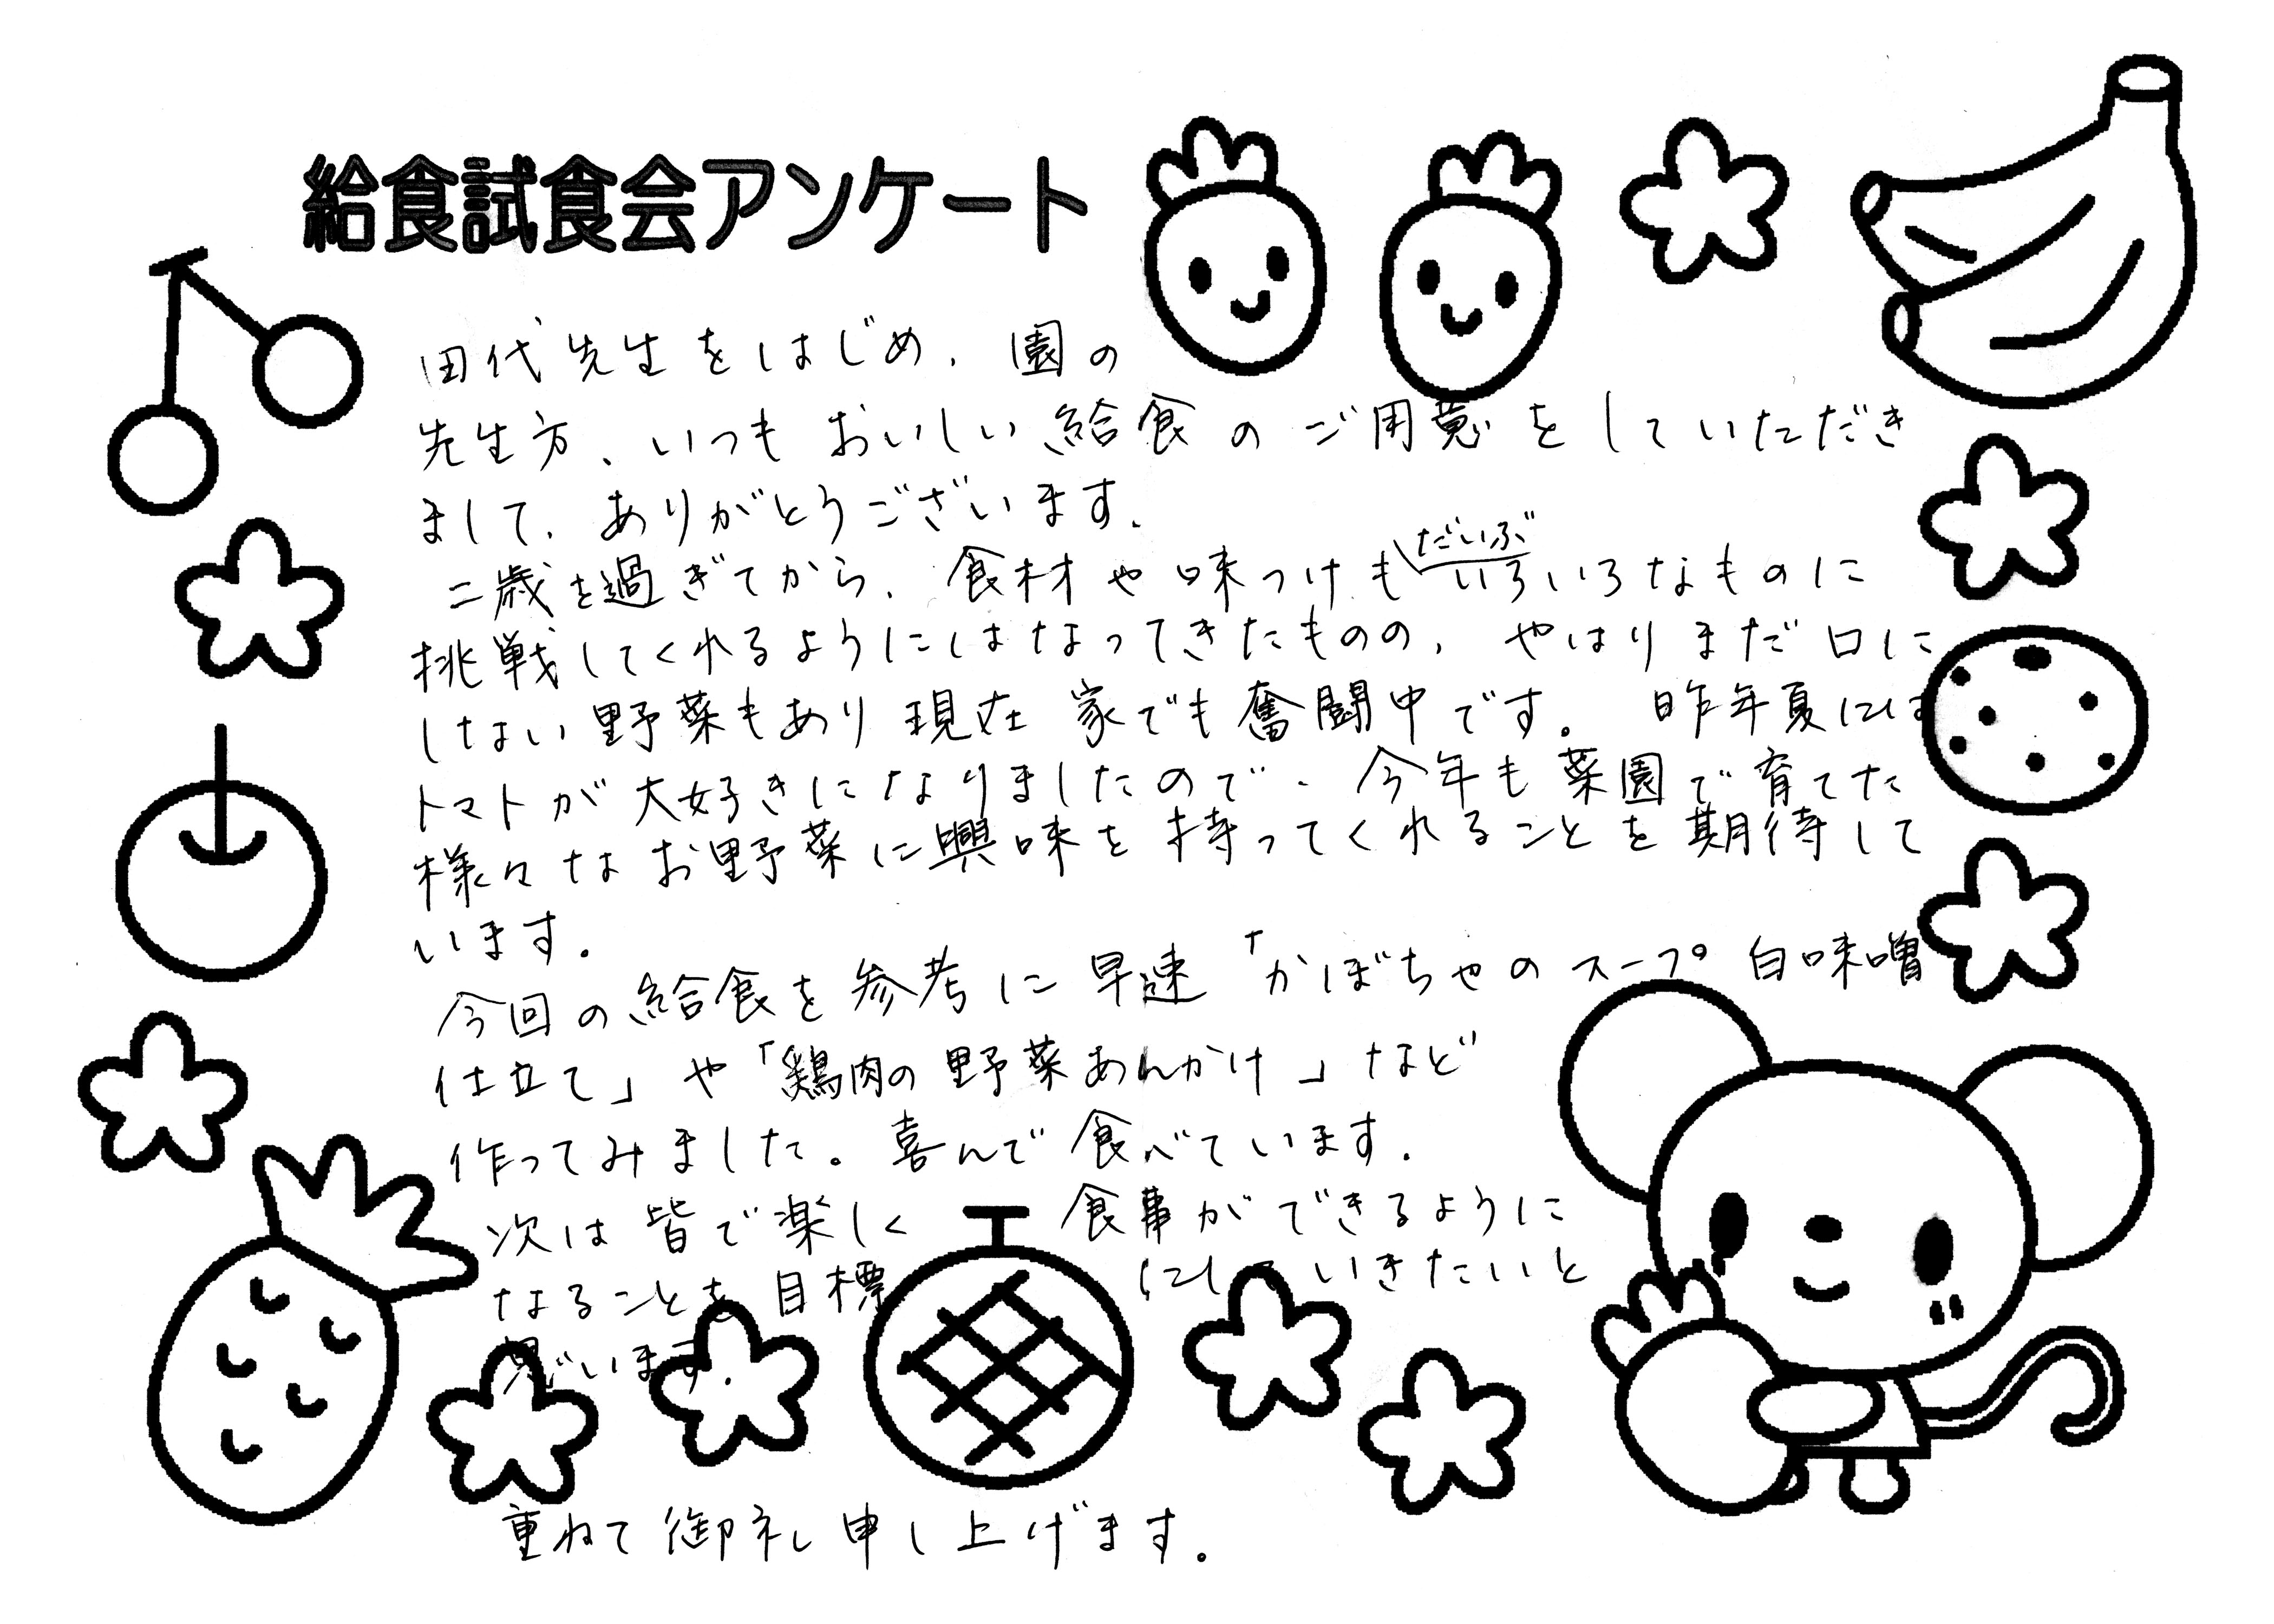 給食試食会アンケート
田代先生をはじめ、園の
先生方、いつもおいしい給食のご用意をしていただき
まして、ありがとうございます。
二歳を過ぎてから、食材や味つけもだいぶいろいろなものに
挑戦してくれるようにはなってきたものの、やはりまだ口に
しない野菜もあり現在家でも奮闘中です。昨年夏には
トマトが大好きになりましたので、今年も菜園で育てた
様々なお野菜に興味を持ってくれることを期待して
います。
今回の給食を参考に早速「かぼちゃのスープ白味噌
仕立て」や「鶏肉の野菜あんかけ」など
作ってみました。喜んで食べています。
次は皆で楽しく食事ができるように
なることを目標にしていきたいと
思います。
重ねて御礼申し上げます。